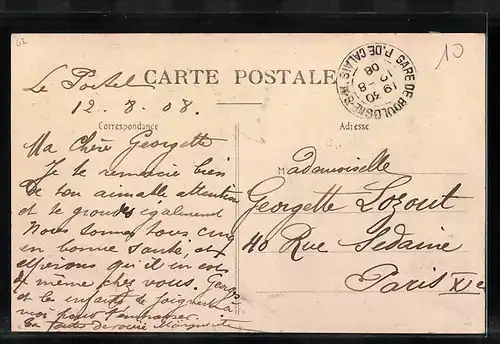 62
10
CARTE POSTALE
GARE DE BOULOGNE-S-M. P. DE CALAIS
19 30
12 - 8
08
Le Portel
12. 8. 08.
Correspondance
Adresse
Ma Chère Georgette
Je te remercie bien
de ton aimable attention
et te également
Nous sommes tous cinq
en bonne santé, et
espérons qu'il en est
de même chez vous. Georges
et les enfants se joignent à
moi pour t'embrasser.
Marguerite
Mademoiselle
Georgette Lozout
40 Rue Sedaine
Paris XIe